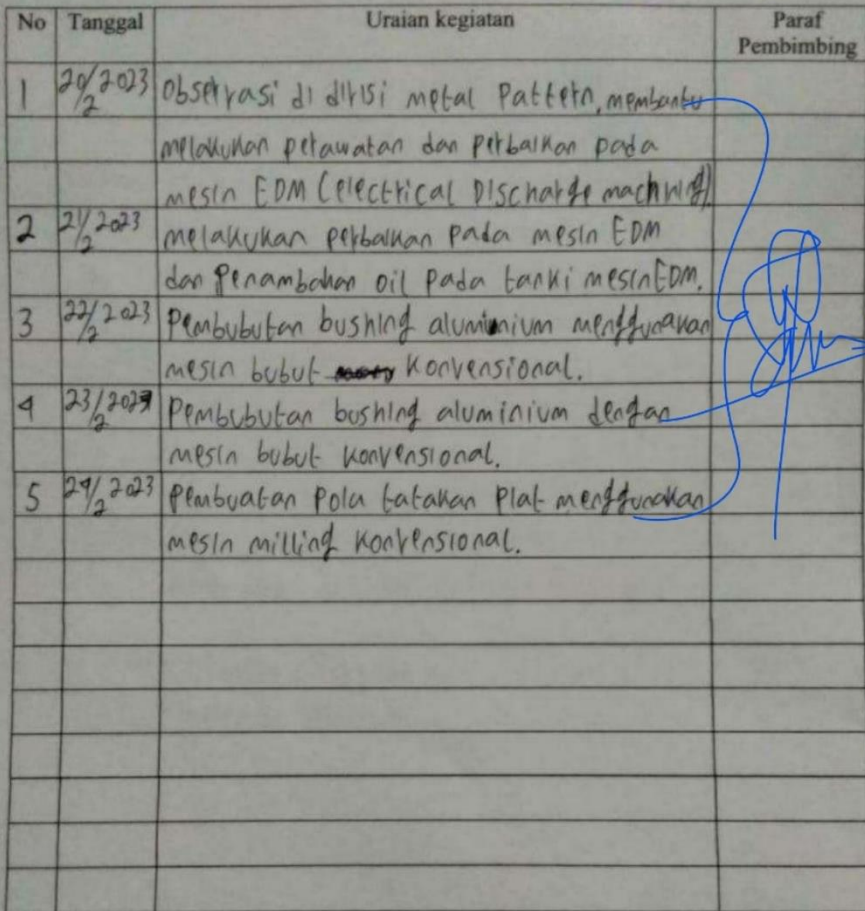 No Tanggal Uraian kegiatan Paraf Pembimbing
1 20/2 2023 Observasi di divisi metal Pattern, membantu
melakukan perawatan dan perbaikan pada
mesin EDM (electrical Discharge machining)
2 21/2 2023 melakukan perbaikan pada mesin EDM
dan Penambahan oil pada tanki mesin EDM.
3 22/2 2023 Pembubutan bushing aluminium menggunakan
mesin bubut konvensional.
4 23/2 2023 Pembubutan bushing aluminium dengan
mesin bubut konvensional.
5 24/2 2023 Pembuatan Pola tatakan Plat menggunakan
mesin milling konvensional.